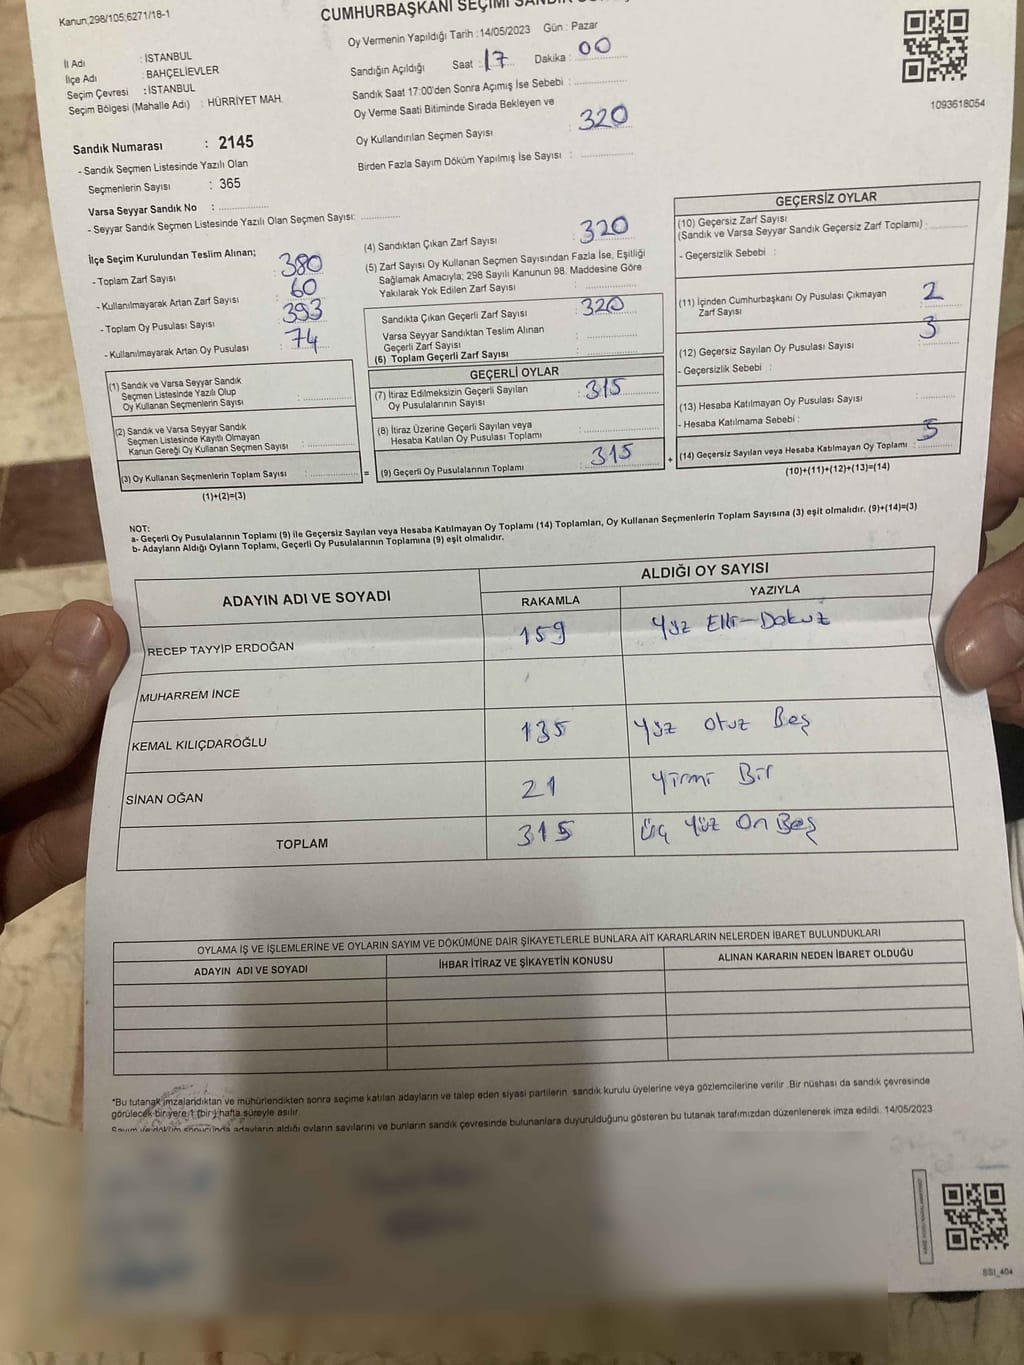 Kanun,298/105;6271/18-1
CUMHURBAŞKANI SEÇİMİ
Oy Vermenin Yapıldığı Tarih :14/05/2023 Gün : Pazar
İl Adı : İSTANBUL
İlçe Adı : BAHÇELİEVLER
Seçim Çevresi : İSTANBUL
Seçim Bölgesi (Mahalle Adı) : HÜRRİYET MAH.
Sandığın Açıldığı Saat : 17 Dakika : 00
Sandık Saat 17:00'den Sonra Açımış İse Sebebi :
Oy Verme Saati Bitiminde Sırada Bekleyen ve
Oy Kullandırılan Seçmen Sayısı : 320
Birden Fazla Sayım Döküm Yapılmış İse Sayısı :
1093618054
Sandık Numarası : 2145
- Sandık Seçmen Listesinde Yazılı Olan
Seçmenlerin Sayısı : 365
Varsa Seyyar Sandık No :
- Seyyar Sandık Seçmen Listesinde Yazılı Olan Seçmen Sayısı:
İlçe Seçim Kurulundan Teslim Alınan;
- Toplam Zarf Sayısı : 380
- Kullanılmayarak Artan Zarf Sayısı : 60
- Toplam Oy Pusulası Sayısı : 393
- Kullanılmayarak Artan Oy Pusulası : 74
(1) Sandık ve Varsa Seyyar Sandık
Seçmen Listesinde Yazılı Olup
Oy Kullanan Seçmenlerin Sayısı :
(2) Sandık ve Varsa Seyyar Sandık
Seçmen Listesinde Kayıtlı Olmayan
Kanun Gereği Oy Kullanan Seçmen Sayısı :
(3) Oy Kullanan Seçmenlerin Toplam Sayısı :
(1)+(2)=(3)
(4) Sandıktan Çıkan Zarf Sayısı : 320
(5) Zarf Sayısı Oy Kullanan Seçmen Sayısından Fazla İse, Eşitliği
Sağlamak Amacıyla; 298 Sayılı Kanunun 98. Maddesine Göre
Yakılarak Yok Edilen Zarf Sayısı :
Sandıkta Çıkan Geçerli Zarf Sayısı : 320
Varsa Seyyar Sandıktan Teslim Alınan
Geçerli Zarf Sayısı :
(6) Toplam Geçerli Zarf Sayısı :
GEÇERLİ OYLAR
(7) İtiraz Edilmeksizin Geçerli Sayılan
Oy Pusulalarının Sayısı : 315
(8) İtiraz Üzerine Geçerli Sayılan veya
Hesaba Katılan Oy Pusulası Toplamı :
= (9) Geçerli Oy Pusulalarının Toplamı : 315 +
GEÇERSİZ OYLAR
(10) Geçersiz Zarf Sayısı
(Sandık ve Varsa Seyyar Sandık Geçersiz Zarf Toplamı) :
- Geçersizlik Sebebi :
(11) İçinden Cumhurbaşkanı Oy Pusulası Çıkmayan
Zarf Sayısı : 2
(12) Geçersiz Sayılan Oy Pusulası Sayısı : 3
- Geçersizlik Sebebi :
(13) Hesaba Katılmayan Oy Pusulası Sayısı :
- Hesaba Katılmama Sebebi :
(14) Geçersiz Sayılan veya Hesaba Katılmayan Oy Toplamı : 5
(10)+(11)+(12)+(13)=(14)
NOT:
a- Geçerli Oy Pusulalarının Toplamı (9) ile Geçersiz Sayılan veya Hesaba Katılmayan Oy Toplamı (14) Toplamları, Oy Kullanan Seçmenlerin Toplam Sayısına (3) eşit olmalıdır. (9)+(14)=(3)
b- Adayların Aldığı Oyların Toplamı, Geçerli Oy Pusulalarının Toplamına (9) eşit olmalıdır.
ADAYIN ADI VE SOYADI ALDIĞI OY SAYISI
RAKAMLA YAZIYLA
RECEP TAYYİP ERDOĞAN 159 Yüz Elli-Dokuz
MUHARREM İNCE
KEMAL KILIÇDAROĞLU 135 Yüz Otuz Beş
SİNAN OĞAN 21 Yirmi Bir
TOPLAM 315 Üç Yüz On Beş
OYLAMA İŞ VE İŞLEMLERİNE VE OYLARIN SAYIM VE DÖKÜMÜNE DAİR ŞİKAYETLERLE BUNLARA AİT KARARLARIN NELERDEN İBARET BULUNDUKLARI
ADAYIN ADI VE SOYADI İHBAR İTİRAZ VE ŞİKAYETİN KONUSU ALINAN KARARIN NEDEN İBARET OLDUĞU
*Bu tutanak imzalandıktan ve mühürlendikten sonra seçime katılan adayların ve talep eden siyasi partilerin sandık kurulu üyelerine veya gözlemcilerine verilir .Bir nüshası da sandık çevresinde
görülecek bir yere 1 (bir) hafta süreyle asılır.
Sayım ve döküm sonucunda adayların aldığı oyların sayılarını ve bunların sandık çevresinde bulunanlara duyurulduğunu gösteren bu tutanak tarafımızdan düzenlenerek imza edildi. 14/05/2023
SSI_404